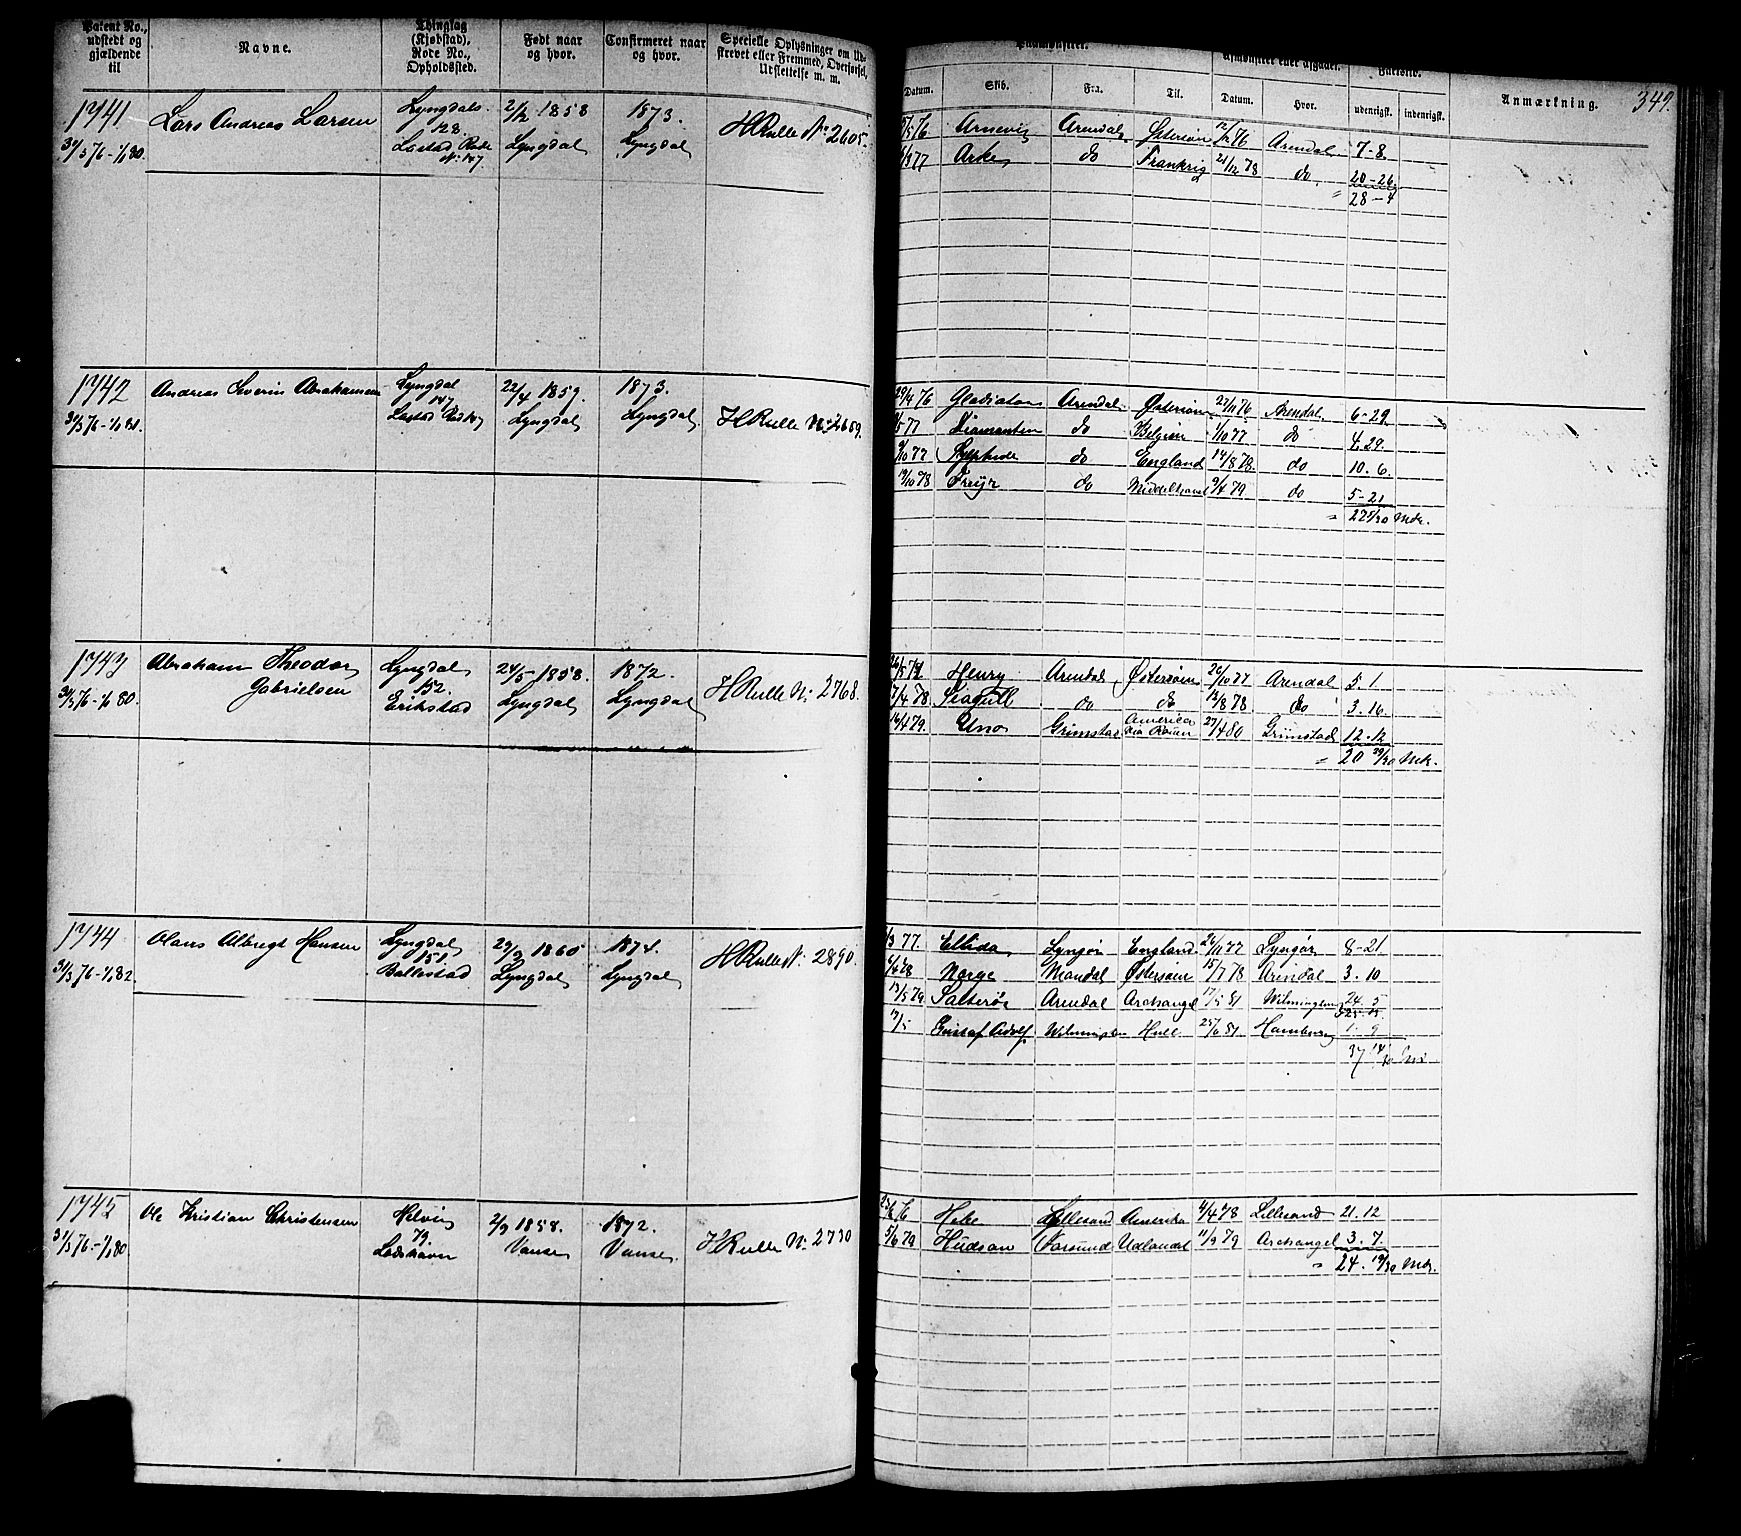 Patent No., udstedt og gjældende til
Navne.
Thinglag (Kjøbstad), Rode No., Opholdssted.
Født naar og hvor.
Confirmeret naar og hvor.
Specielle Oplysninger om Udskrevet eller Fremmed, Overførsel, Udslettelse m. m.
Paamønstret.
Afmønstret eller afgaaet.
Fartstid.
Anmærkning.
349.
Datum.
Skib.
Fra.
Til.
Datum.
Hvor.
udenrigsk.
indenrigsk.
1741
31/3 76-1/1 80.
Lars Andreas Larsen
Lyngdals
128.
Lastad Rode
No 147.
2/2 1858
Lyngdal
1873.
Lyngdal
HRulle No 2605.
76 Arnevig Arendal Østersøen 12/12 76 Arendal 7-8.
77 Arke do Frankrig 21/12 78 do 20-26
" 28-4
1742
31/3 76-1/1 81.
Andreas Severin Abrahamsen
Lyngdal
147
Lastad
22/4 1859.
Lyngdal
1873.
Lyngdal
HRulle No 2659.
29/4 76 Gladiator Arendal Østersøen 27/11 76 Arendal 6-29
77 Diamanten do Belgien 1/10 77 do 4.29.
9/10 77 Sylphide do England 14/8 78 do 10.6.
19/10 78 Freyr do Middelhavet 9/4 79 do 5-21
" 27 25/30 Mdr.
1743
31/3 76-1/1 80.
Abraham Theodor
Gabrielsen
Lyngdal
152.
Erikstad
24/5 1858.
Lyngdal
1872.
Lyngdal
HRulle No 2768.
26/5 77 Henry Arendal Østersøen 26/10 77 Arendal 5.1
7/4 78 Seagull do do 12/8 78 do 3.16
16/4 79. Uno Grimstad America 27/4 80 Grimstad 12.12
" 20 29/30 Mdr.
1744
31/3 76-1/1 82.
Olaus Albregt Hansen
Lyngdal
151.
Ballestad
29/3 1860
Lyngdal
1874.
Lyngdal
HRulle No 2890.
77. Ellida Lyngør England 26/11 77 Lyngør 8-21
6/4 78 Norge Mandal Østersøen 15/7 78 Arendal 3.10
13/5 79 Salterøe Arendal Archangel 17/5 81 Wilmington 24.5
17/5 Gustaf Adolf Wilmington Hull 25/6 81 Hamburg 1-9
37 14/30 Mdr
1745
31/3 76-1/1 80
Ole Kristian Christensen
Helvig
79.
Ladehavn
2/9 1858.
Vanse
1872.
Vanse
HRulle No 2730
76 Hebe Lillesand Amerika 4/4 78 Lillesand 21.12
5/6 79 Hudson Farsund Udlandet 11/9 79 Archangel 3.7.
" 24. 19/30 Mdr.